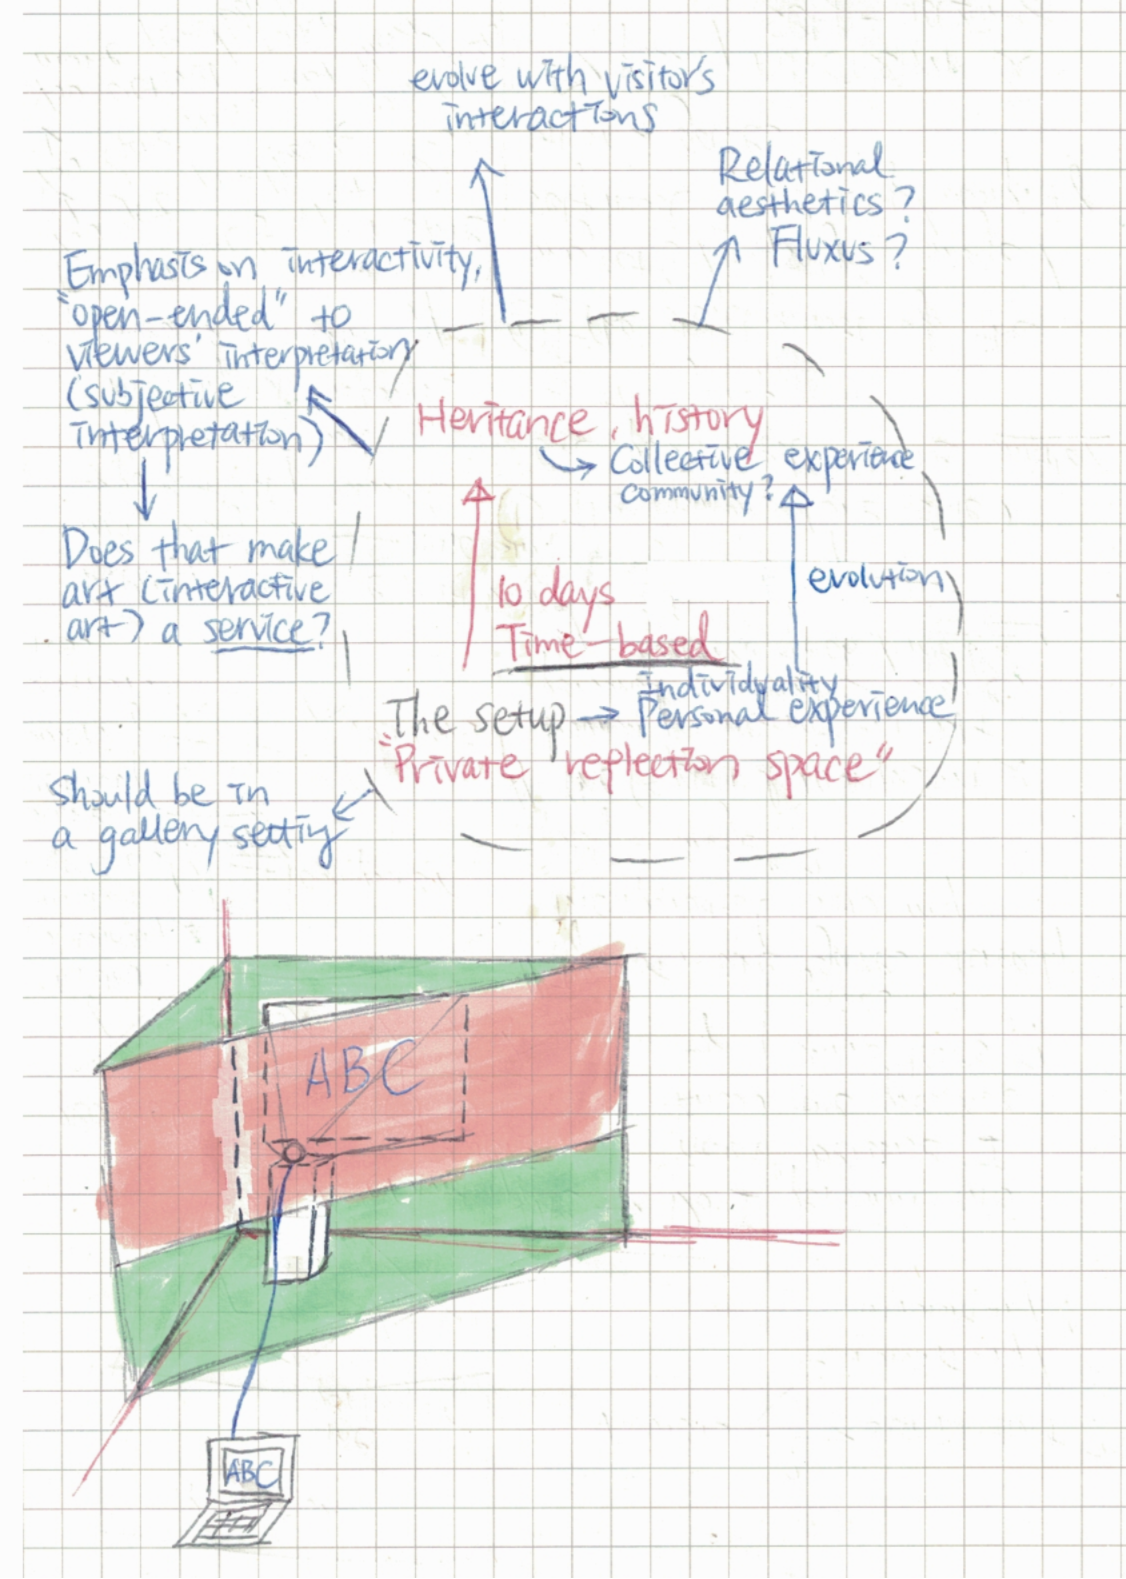 evolve with visitor's
interactions
Relational
aesthetics?
Fluxus?
Emphasis on interactivity,
"open-ended" to
viewers' interpretation
(subjective
interpretation)
Does that make
art (interactive
art) a service?
Heritance, history
Collective experience
community?
evolution
10 days
Time-based
Individuality
The setup → Personal experience
"Private reflection space"
Should be in
a gallery setting
ABC
ABC